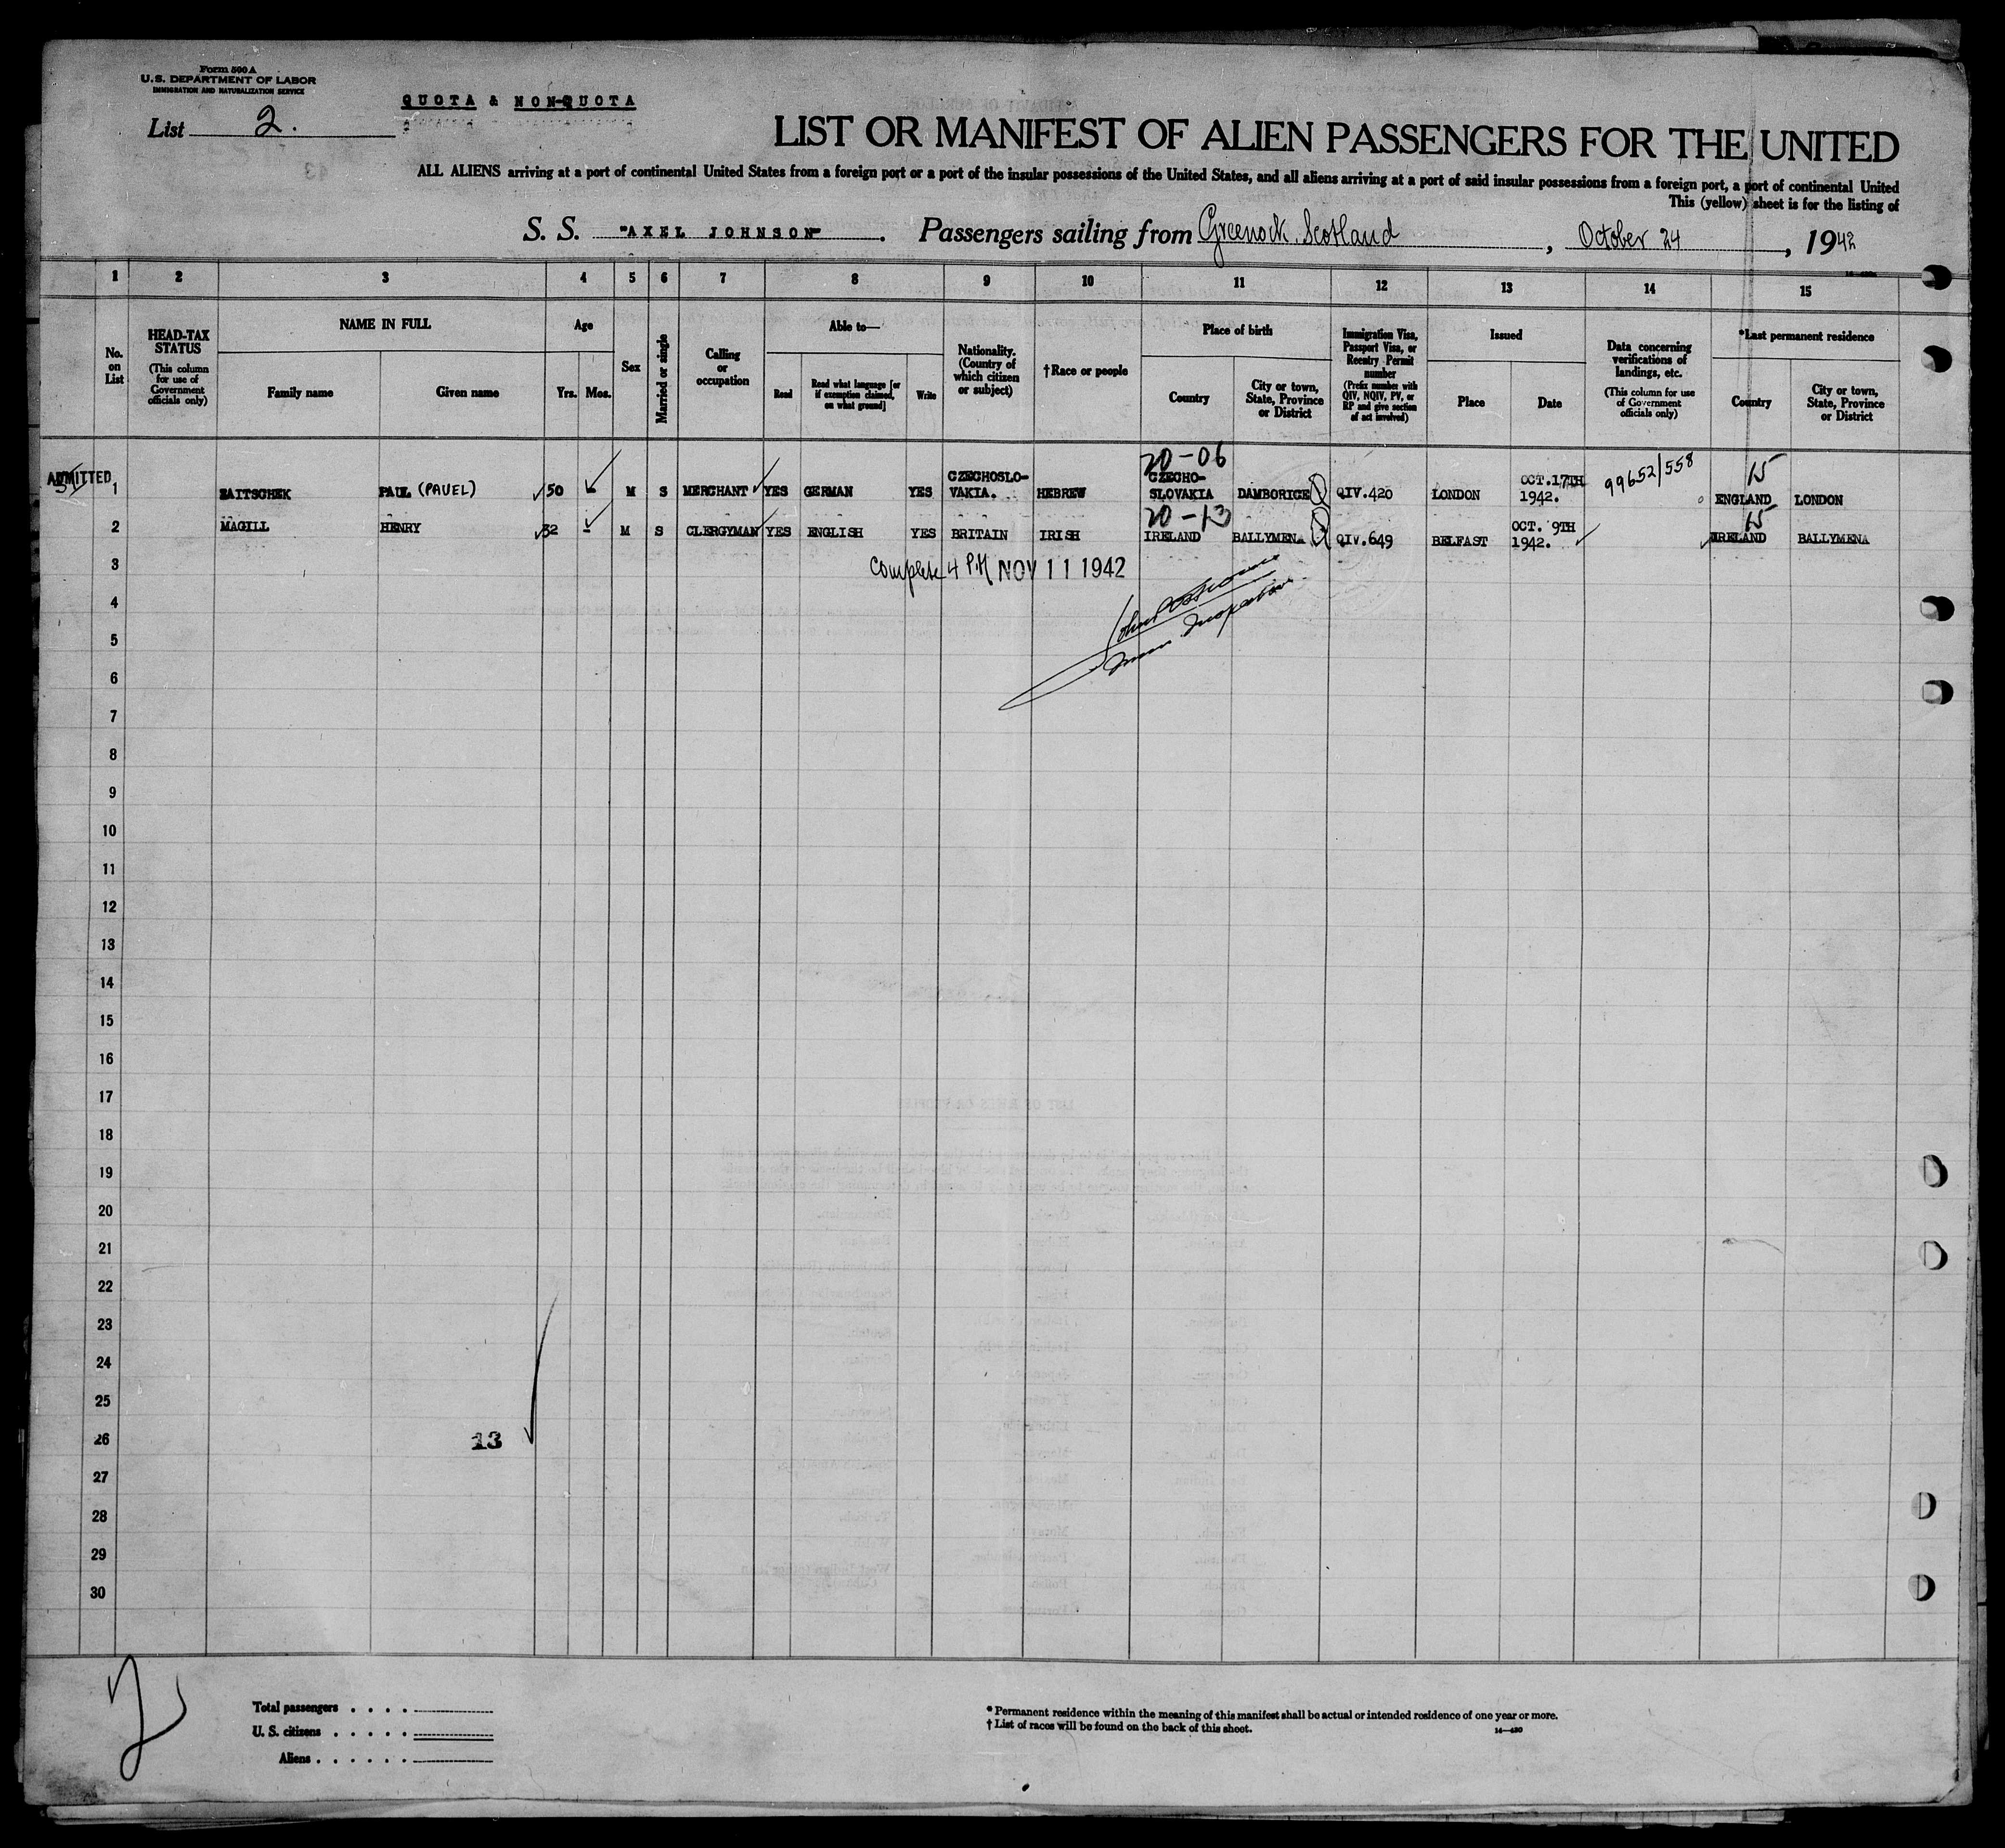 Form 500 A
U.S. DEPARTMENT OF LABOR
IMMIGRATION AND NATURALIZATION SERVICE
QUOTA & NON-QUOTA
List 2.
LIST OR MANIFEST OF ALIEN PASSENGERS FOR THE UNITED
ALL ALIENS arriving at a port of continental United States from a foreign port or a port of the insular possessions of the United States, and all aliens arriving at a port of said insular possessions from a foreign port, a port of continental United
This (yellow) sheet is for the listing of
S. S. "AXEL JOHNSON". Passengers sailing from Greenock, Scotland, October 24, 1942
1 2 3 4 5 6 7 8 9 10 11 12 13 14 15
No. on List
HEAD-TAX STATUS
(This column for use of Government officials only)
NAME IN FULL
Family name
Given name
Age
Yrs.
Mos.
Sex
Married or single
Calling or occupation
Able to—
Read
Read what language [or if exemption claimed, on what ground]
Write
Nationality. (Country of which citizen or subject)
†Race or people
Place of birth
Country
City or town, State, Province or District
Immigration Visa, Passport Visa, or Reentry Permit number
(Prefix number with QIV, NQIV, PV, or RP and give section of act involved)
Issued
Place
Date
Data concerning verifications of landings, etc.
(This column for use of Government officials only)
*Last permanent residence
Country
City or town, State, Province or District
20-06
ADMITTED 1 ZAITSCHEK PAUL (PAVEL) 50 - M S MERCHANT YES GERMAN YES CZECHOSLO-VAKIA. HEBREW CZECHO-SLOVAKIA DAMBORICE QIV.420 LONDON OCT.17TH 1942. 99652/558 15 ENGLAND LONDON
20-13
2 MAGILL HENRY 32 - M S CLERGYMAN YES ENGLISH YES BRITAIN IRISH IRELAND BALLYMENA QIV.649 BELFAST OCT. 9TH 1942. 15 IRELAND BALLYMENA
3 Complete 4 P.M NOV 11 1942
4
5
Inspector
6
7
8
9
10
11
12
13
14
15
16
17
18
19
20
21
22
23
24
25
26 13
27
28
29
30
2
Total passengers
U. S. citizens
Aliens
* Permanent residence within the meaning of this manifest shall be actual or intended residence of one year or more.
† List of races will be found on the back of this sheet.
14—430